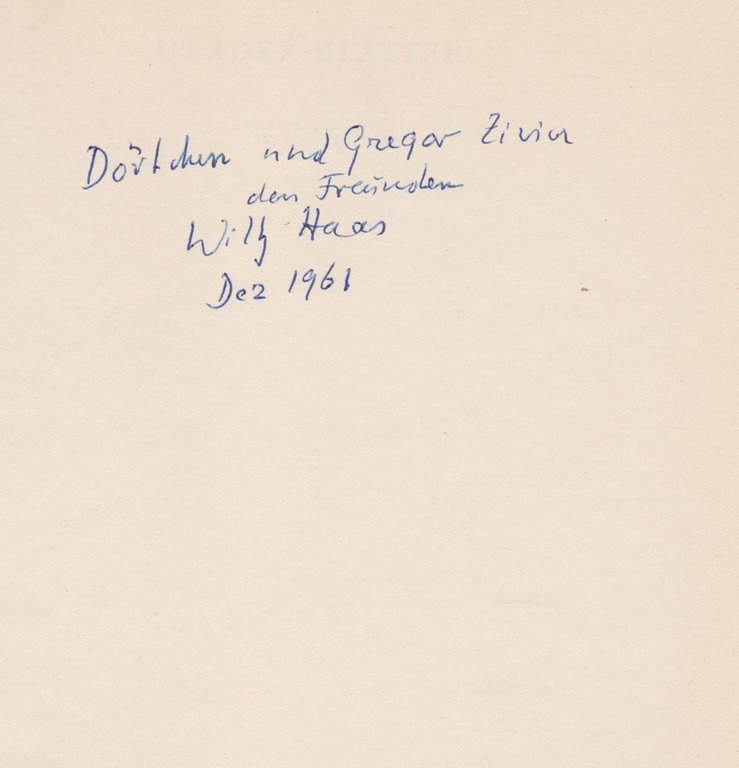 HERDER-BLÄTTER
Dörtchen und Gregor Zivier
den Freunden
Willy Haas
Dez 1961